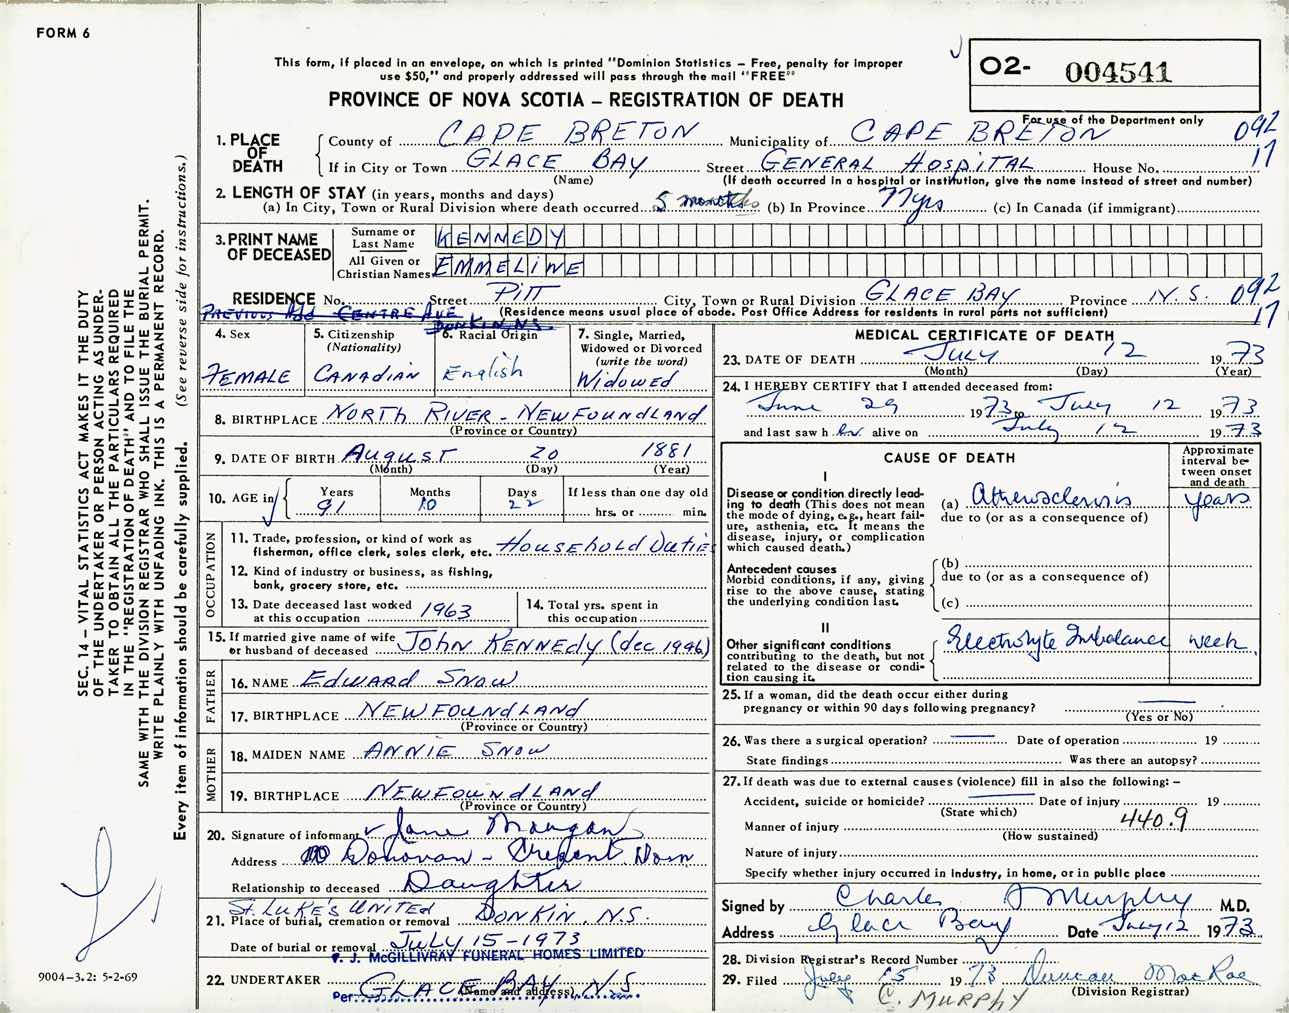 FORM 6
SEC. 14 – VITAL STATISTICS ACT MAKES IT THE DUTY
OF THE UNDERTAKER OR PERSON ACTING AS UNDER-
TAKER TO OBTAIN ALL THE PARTICULARS REQUIRED
IN THE "REGISTRATION OF DEATH" AND TO FILE THE
SAME WITH THE DIVISION REGISTRAR WHO SHALL ISSUE THE BURIAL PERMIT.
WRITE PLAINLY WITH UNFADING INK. THIS IS A PERMANENT RECORD.
Every item of information should be carefully supplied. (See reverse side for instructions.)
9004–3.2: 5-2-69
This form, if placed in an envelope, on which is printed "Dominion Statistics – Free, penalty for improper
use $50," and properly addressed will pass through the mail "FREE"
PROVINCE OF NOVA SCOTIA – REGISTRATION OF DEATH
O2- 004541
For use of the Department only
1. PLACE OF DEATH
County of CAPE BRETON Municipality of CAPE BRETON 092
If in City or Town GLACE BAY Street GENERAL HOSPITAL House No. 17
(Name) (If death occurred in a hospital or institution, give the name instead of street and number)
2. LENGTH OF STAY (in years, months and days)
(a) In City, Town or Rural Division where death occurred 5 months (b) In Province 77yrs (c) In Canada (if immigrant)
3. PRINT NAME OF DECEASED
Surname or Last Name KENNEDY
All Given or Christian Names EMMELINE
RESIDENCE No. Street PITT City, Town or Rural Division GLACE BAY Province N.S. 092
(Residence means usual place of abode. Post Office Address for residents in rural parts not sufficient) 17
PREVIOUS Add CENTRE AVE
DONKIN N.S.
4. Sex FEMALE
5. Citizenship (Nationality) CANADIAN
6. Racial Origin English
7. Single, Married, Widowed or Divorced (write the word) WIDOWED
8. BIRTHPLACE NORTH RIVER - NEWFOUNDLAND
(Province or Country)
9. DATE OF BIRTH AUGUST 20 1881
(Month) (Day) (Year)
10. AGE in Years 91 Months 10 Days 22 If less than one day old hrs. or min.
OCCUPATION
11. Trade, profession, or kind of work as
fisherman, office clerk, sales clerk, etc. HOUSEHOLD DUTIES
12. Kind of industry or business, as fishing,
bank, grocery store, etc.
13. Date deceased last worked at this occupation 1963
14. Total yrs. spent in this occupation
15. If married give name of wife or husband of deceased JOHN KENNEDY (dec 1946)
FATHER
16. NAME EDWARD SNOW
17. BIRTHPLACE NEWFOUNDLAND
(Province or Country)
MOTHER
18. MAIDEN NAME ANNIE SNOW
19. BIRTHPLACE NEWFOUNDLAND
(Province or Country)
20. Signature of informant Jane Mangan
Address Donovan
Relationship to deceased Daughter
ST. LUKE'S UNITED
21. Place of burial, cremation or removal DONKIN, N.S.
Date of burial or removal JULY 15-1973
V. J. McGILLIVRAY FUNERAL HOMES LIMITED
22. UNDERTAKER GLACE BAY, N.S.
Per (Name and address)
MEDICAL CERTIFICATE OF DEATH
23. DATE OF DEATH July 12 1973
(Month) (Day) (Year)
24. I HEREBY CERTIFY that I attended deceased from:
June 29 1973 to July 12 1973
and last saw her alive on July 12 1973
CAUSE OF DEATH
Approximate interval between onset and death
I
Disease or condition directly lead-
ing to death (This does not mean
the mode of dying, e.g., heart fail-
ure, asthenia, etc. It means the
disease, injury, or complication
which caused death.)
(a) Atherosclerosis years
due to (or as a consequence of)
Antecedent causes
Morbid conditions, if any, giving
rise to the above cause, stating
the underlying condition last.
(b)
due to (or as a consequence of)
(c)
II
Other significant conditions
contributing to the death, but not
related to the disease or condi-
tion causing it.
Electrolyte Imbalance week
25. If a woman, did the death occur either during
pregnancy or within 90 days following pregnancy?
(Yes or No)
26. Was there a surgical operation? Date of operation 19
State findings Was there an autopsy?
27. If death was due to external causes (violence) fill in also the following: –
Accident, suicide or homicide? Date of injury 19
(State which)
Manner of injury 440.9
(How sustained)
Nature of injury
Specify whether injury occurred in Industry, in home, or in public place
Signed by Charles Murphy M.D.
Address Glace Bay Date July 12 1973
28. Division Registrar's Record Number
29. Filed July 15 1973 Duncan MacRae
(Division Registrar)
C. MURPHY